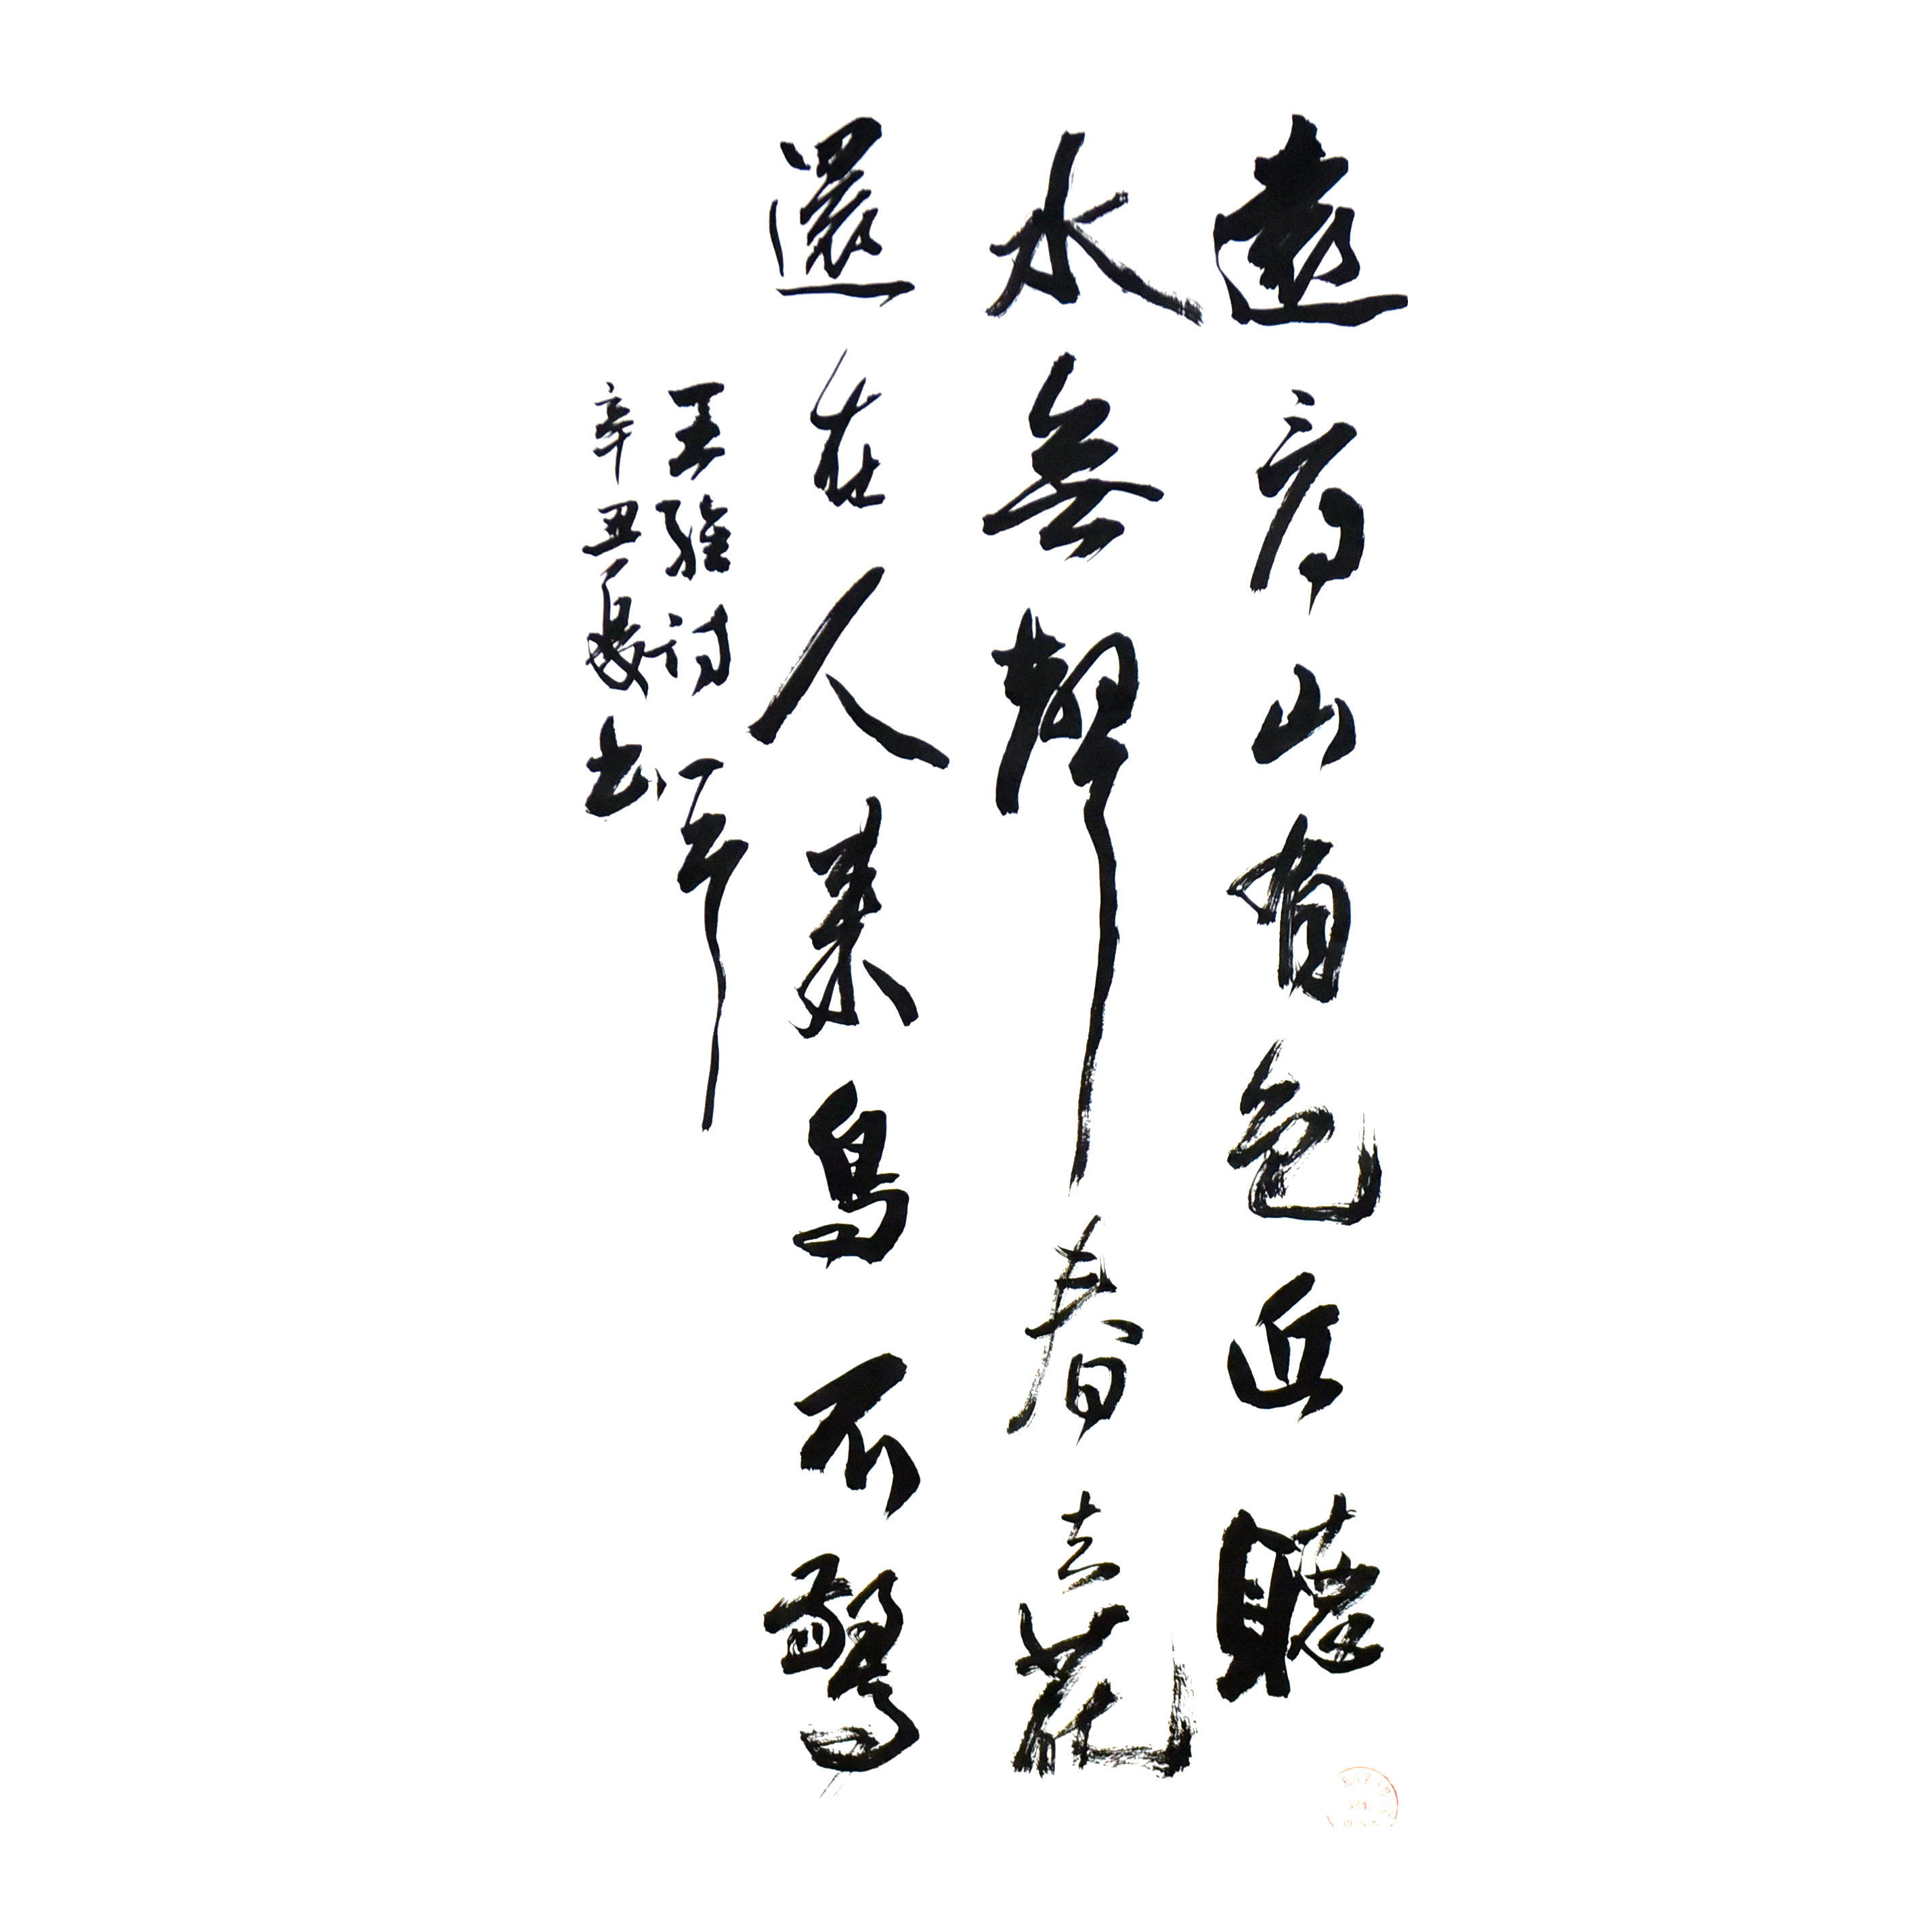 遠看山有色近聽
水無聲春去花
還在人來鳥不驚
王維詩
辛丑 书